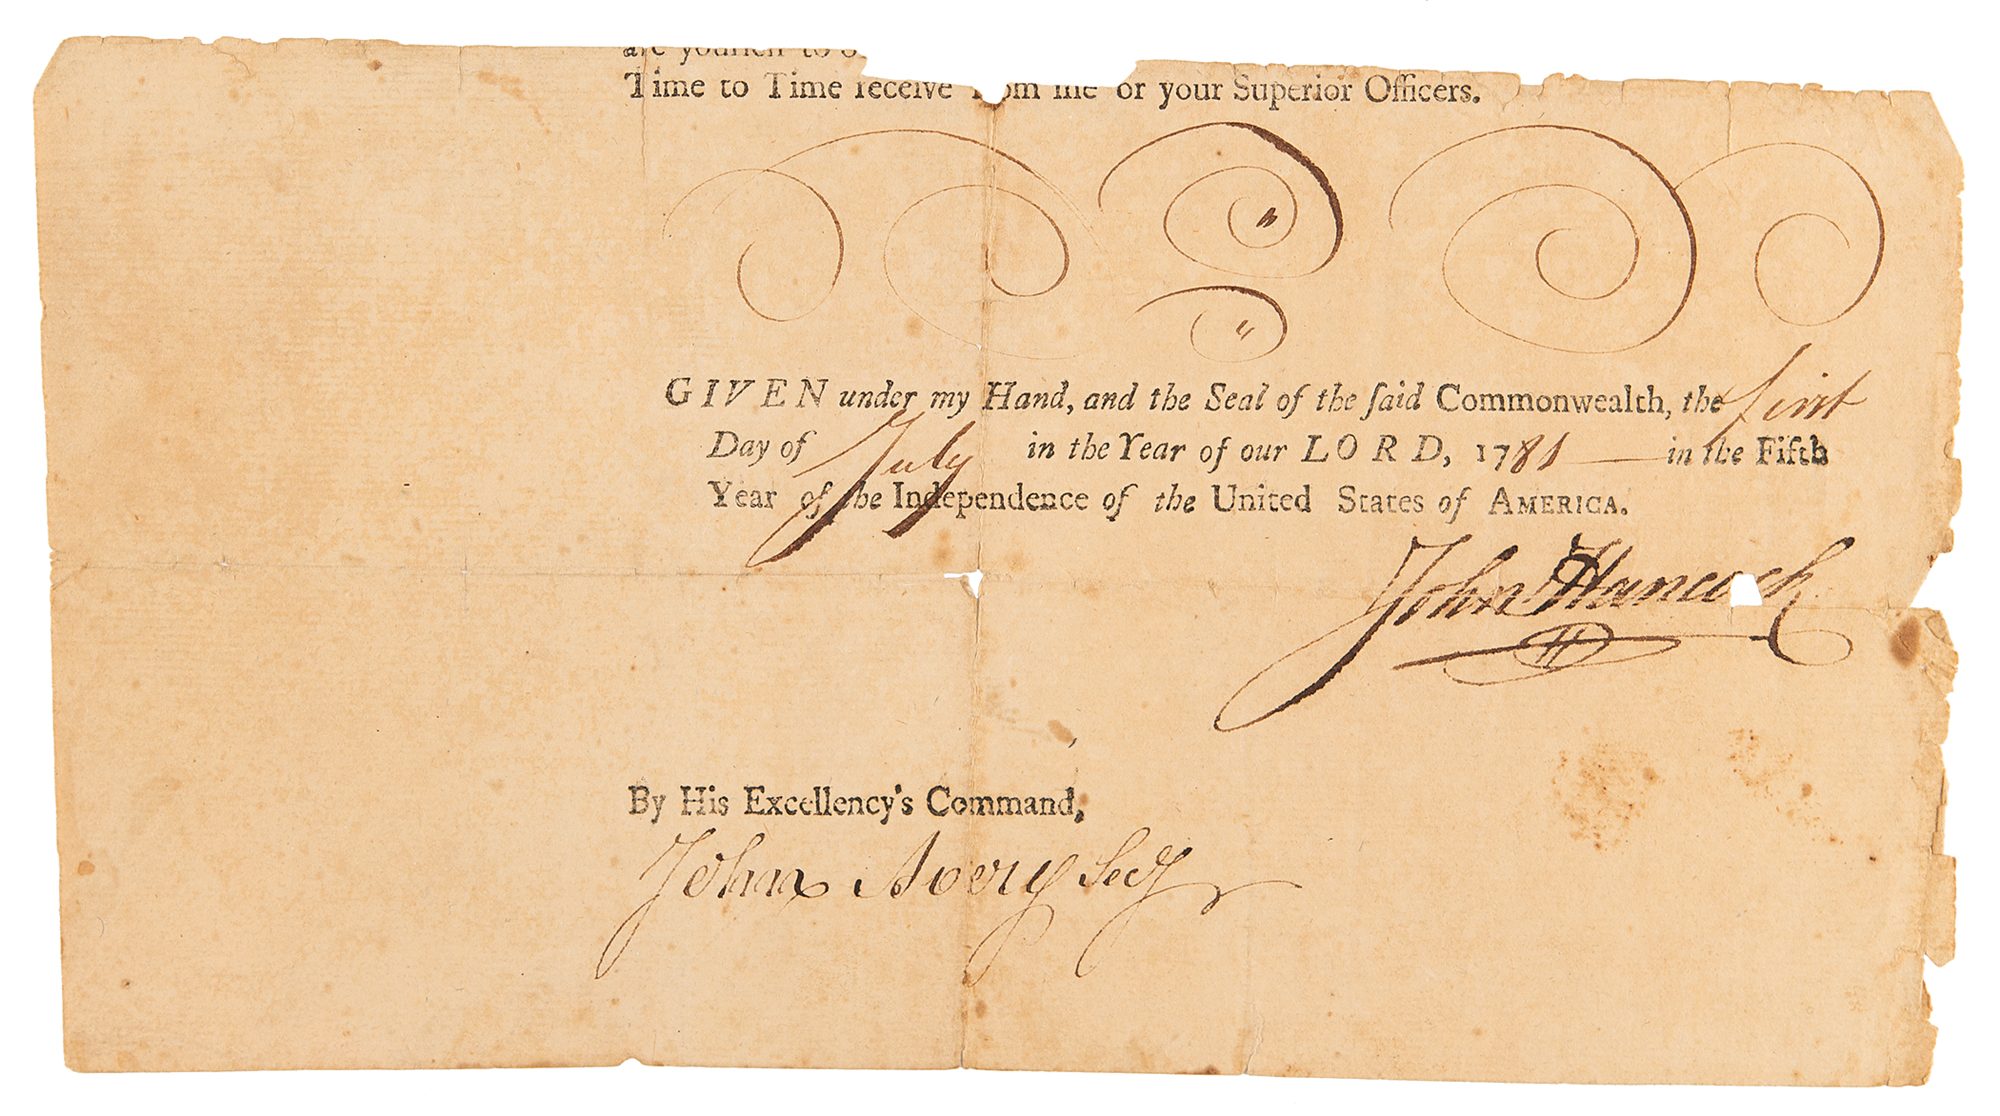 are yourself to o
Time to Time receive from me or your Superior Officers.
GIVEN under my Hand, and the Seal of the ſaid Commonwealth, the first
Day of July in the Year of our LORD, 1781 in the Fifth
Year of the Independence of the United States of AMERICA.
John Hancock
By His Excellency's Command,
John Avery Secy